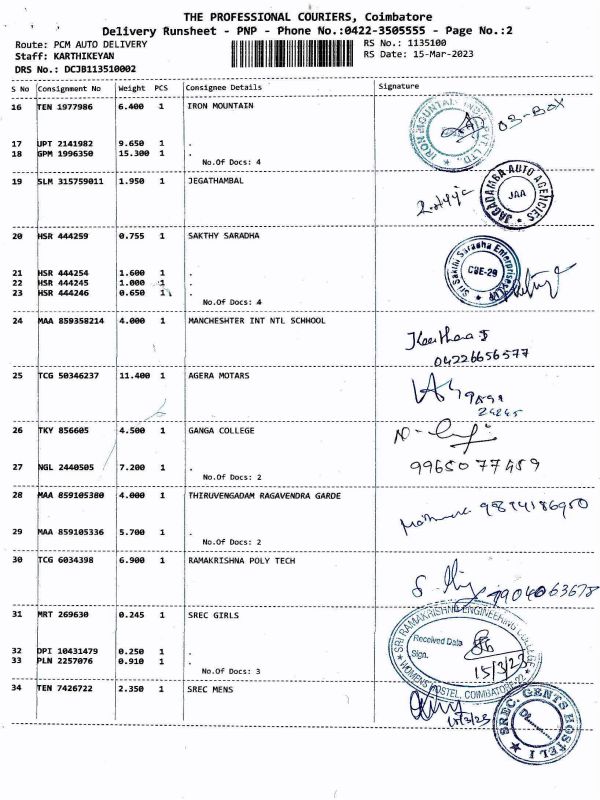 THE PROFESSIONAL COURIERS, Coimbatore
Delivery Runsheet - PNP - Phone No.:0422-3505555 - Page No.:2
Route: PCM AUTO DELIVERY
RS No.: 1135100
Staff: KARTHIKEYAN
RS Date: 15-Mar-2023
DRS No.: DCJB113510002
S No Consignment No Weight PCS Consignee Details Signature
16 TEN 1977986 6.400 1 IRON MOUNTAIN
03-BOX
17 UPT 2141982 9.650 1 .
18 GPM 1996350 15.300 1 .
No.Of Docs: 4
19 SLM 315759011 1.950 1 JEGATHAMBAL
JAGADAMBA AUTO AGENCIES
JAA
20 HSR 444259 0.755 1 SAKTHY SARADHA
Sri Sakthi Saradha Enterprises
CBE-29
21 HSR 444254 1.600 1 .
22 HSR 444245 1.000 1 .
23 HSR 444246 0.650 1 .
No.Of Docs: 4
24 MAA 859358214 4.000 1 MANCHESHTER INT NTL SCHHOOL
Keerthana S
04226656577
25 TCG 50346237 11.400 1 AGERA MOTARS
26 TKY 856605 4.500 1 GANGA COLLEGE
27 NGL 2440505 7.200 1 .
No.Of Docs: 2
9965077459
28 MAA 859105380 4.000 1 THIRUVENGADAM RAGAVENDRA GARDE
29 MAA 859105336 5.700 1 .
No.Of Docs: 2
30 TCG 6034398 6.900 1 RAMAKRISHNA POLY TECH
7904063678
31 MRT 269630 0.245 1 SREC GIRLS
SRI RAMAKRISHNA ENGINEERING COLLEGE
Received Data
Sign.
15/3/23
WOMENS HOSTEL, COIMBATORE-22
32 DPI 10431479 0.250 1 .
33 PLN 2257076 0.910 1 .
No.Of Docs: 3
34 TEN 7426722 2.350 1 SREC MENS
15/3/23
SREC GENTS HOSTEL